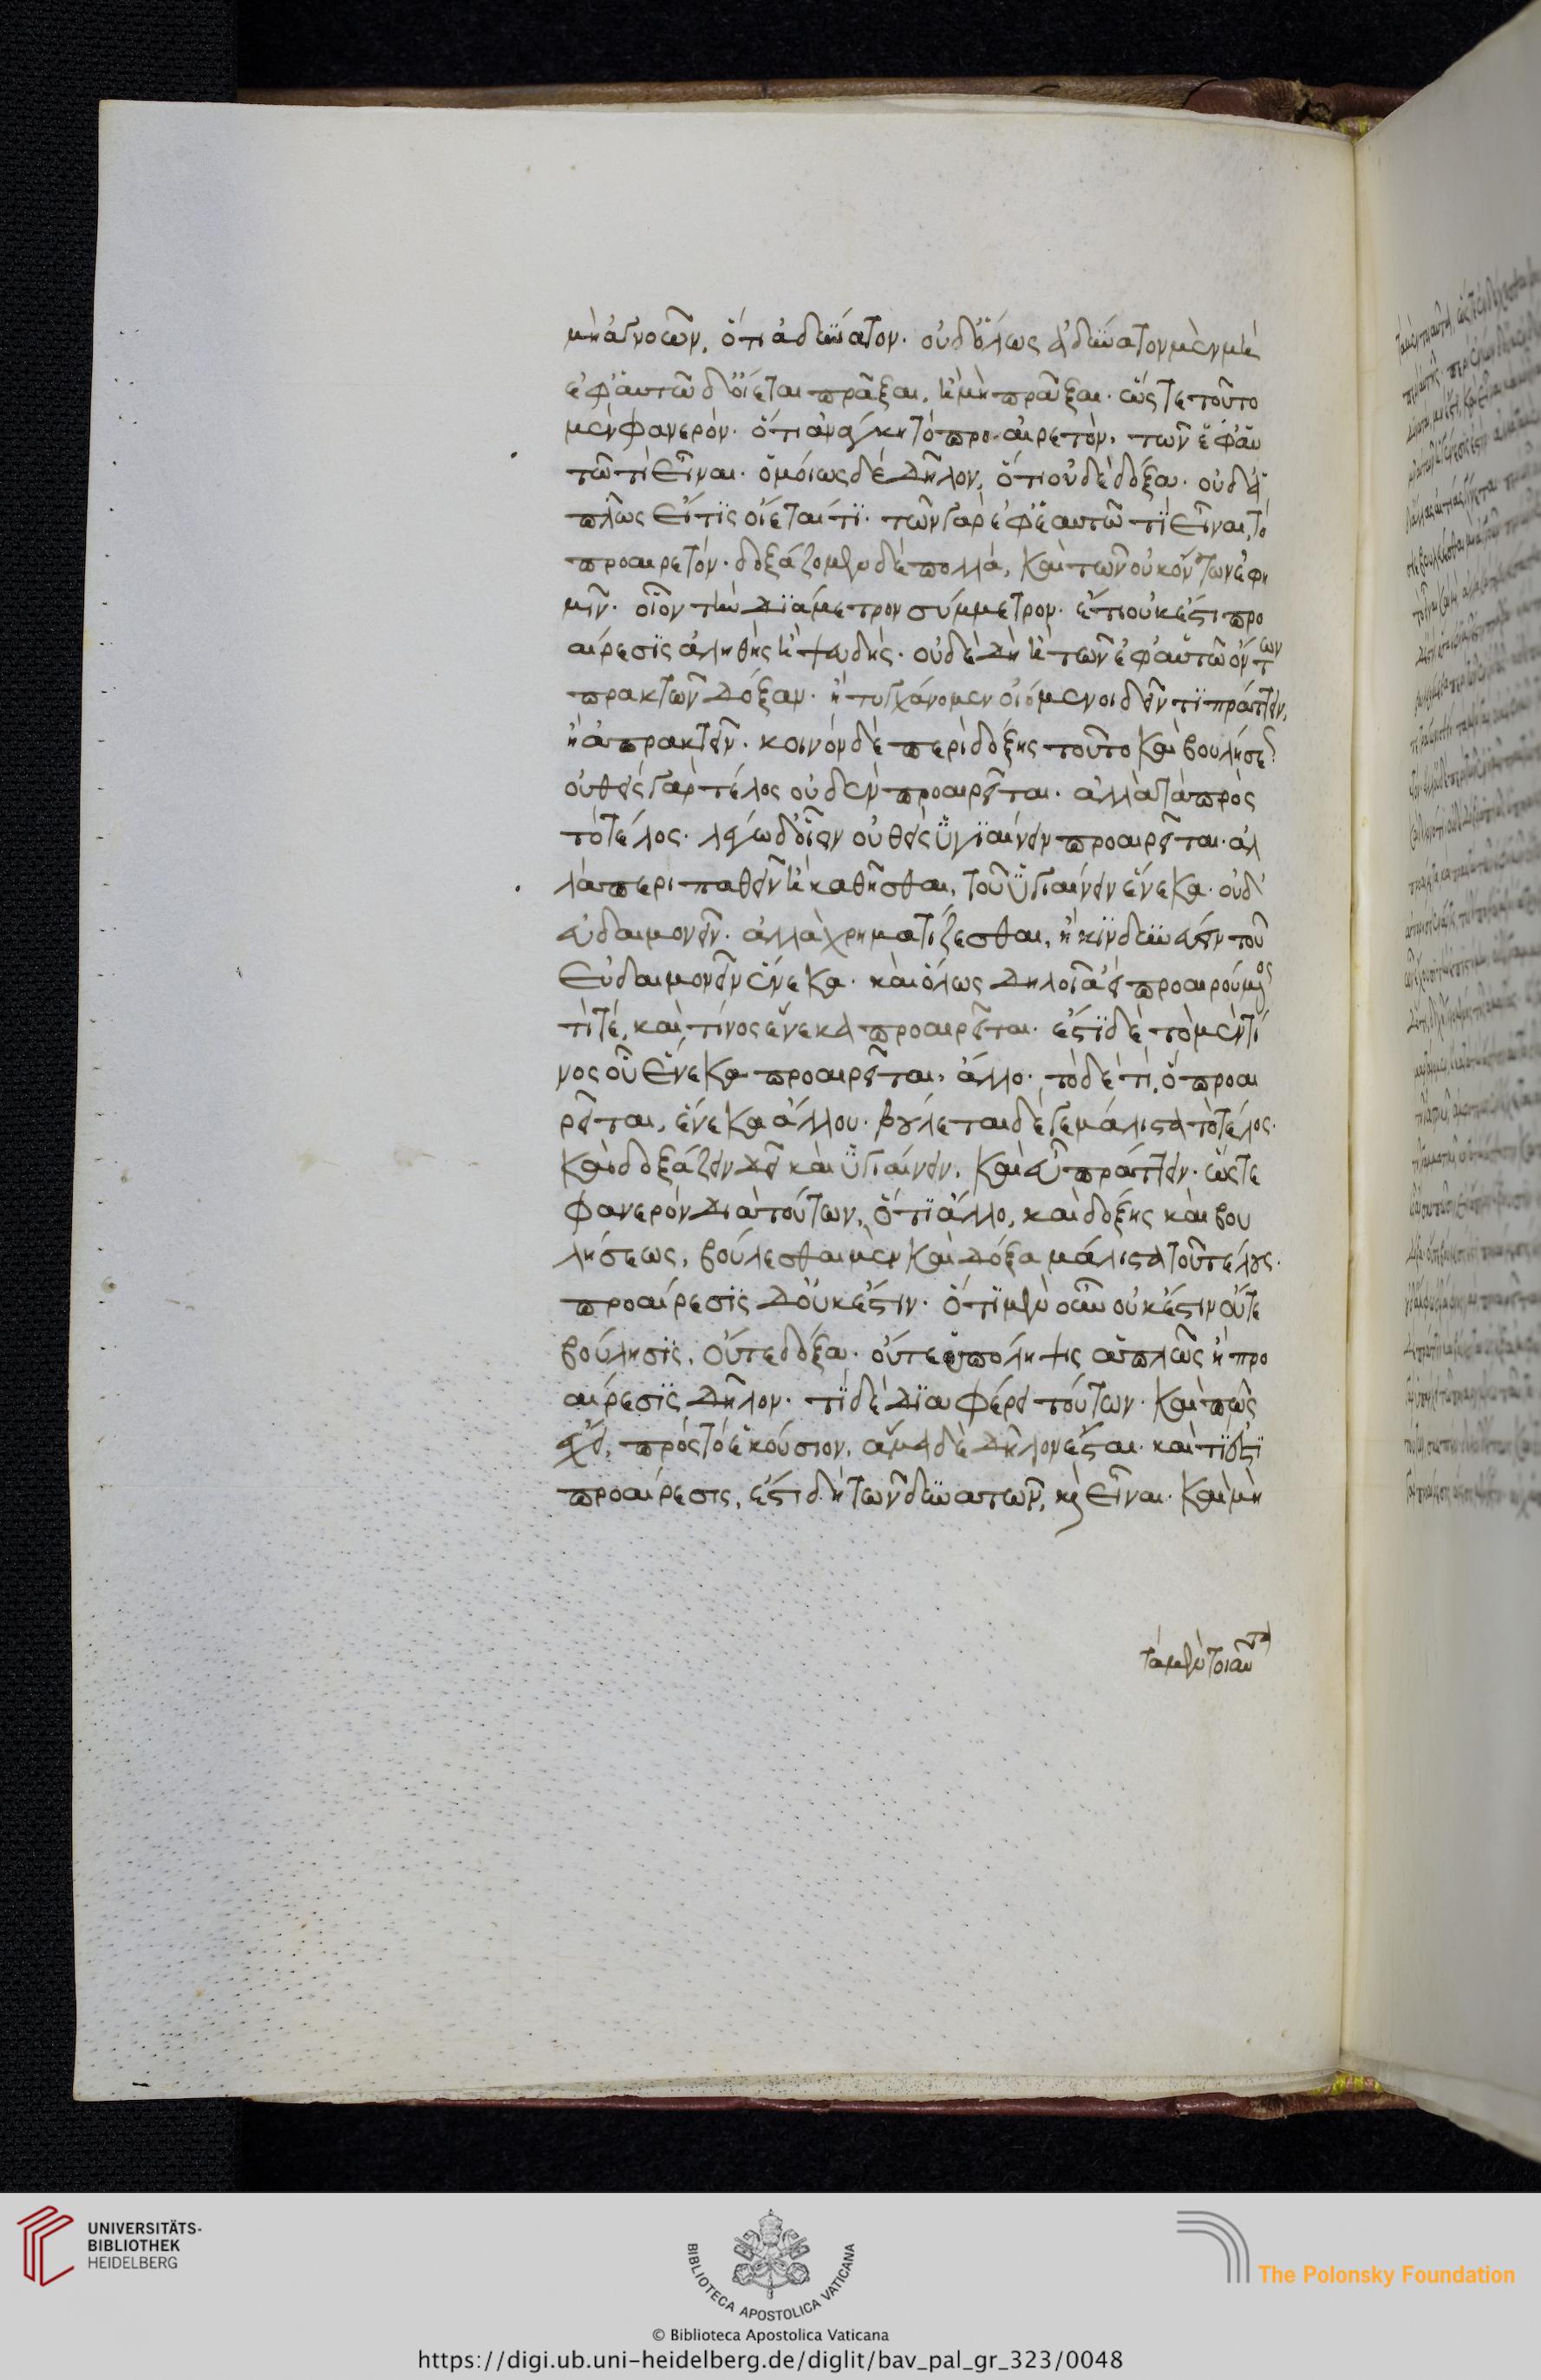 μὴ ἀγνοῶν, ὅτι ἀδύνατον. οὐδ' ὅλως ἀδύνατον μὲν μὴ
ἐφ' αυτῶ δ' οἴεται πρᾶξαι, ἢ μὴ πρᾶξαι. ὥς τε τοῦτο
μὲν φανερὸν. ὅτι ἀνάγκη τὸ προαιρετὸν, τῶν ἐφ' αυ
τῶ τὶ εἶναι. ὁμοίως δὲ δῆλον, ὅτι οὐδὲ δόξα. οὐδ' ἁ
πλῶς εἴ τις οἴεταί τι. τῶν γὰρ ἐφ' ἑαυτῶ τὶ εἶναι, τὸ
προαιρετόν. δοξάζομεν δὲ πολλὰ, καὶ τῶν οὐκ ὄντων ἐφ' ἡ
μῖν. οἷον τὴν διάμετρον σύμμετρον. ἔτι οὐκ ἔστι προ
αίρεσις ἀληθὴς ἢ ψευδής. οὐδὲ δὴ ἡ τῶν ἐφ' αὑτῶ ὄντων
πρακτῶν δόξαν. ἣ τυγχάνομεν οἰόμενοι δεῖν τὶ πράττειν,
ἢ ἀπρακτεῖν. κοινὸν δὲ περὶ δόξης τοῦτο καὶ βουλήσε
οὐθεὶς γὰρ τέλος οὐδὲν προαιρεῖται. ἀλλὰ τὰ πρὸς
τὸ τέλος. λέγω δ' οἷον οὐθεὶς ὑγιαίνειν προαιρεῖται. ἀλ
λὰ περιπαθεῖν ἢ καθῆσθαι, τοῦ ὑγιαίνειν ἕνεκα. οὐδ'
εὐδαιμονεῖν. ἀλλὰ χρηματίζεσθαι, ἢ κινδυνεύειν τοῦ
εὐδαιμονεῖν ἕνεκα. καὶ ὅλως δηλοῖ ἀεὶ προαιρούμενος
τί τέ, καὶ τίνος ἕνεκα προαιρεῖται. ἔστι δὲ τὸ μὲν τί
νος οὗ ἕνεκα προαιρεῖται, ἄλλο. τὸ δὲ τὶ, ὃ προαι
ρεῖται, ἕνεκα ἄλλου. βούλεται δέ γε μάλιστα τὸ τέλος.
καὶ δοξάζειν δεῖ καὶ ὑγιαίνειν, καὶ εὖ πράττειν. ὥς τε
φανερὸν διὰ τούτων, ὅτι ἄλλο, καὶ δόξης καὶ βου
λήσεως, βούλεσθαι μὲν καὶ δόξα μάλιστα τοῦ τέλους.
προαίρεσις δ' οὐκ ἔστιν. ὅτι μὲν οὖν οὐκ ἔστιν οὔτε
βούλησις, οὔτε δόξα. οὔτε ὑπόληψις ἁπλῶς ἡ προ
αίρεσις δῆλον. τί δὲ διαφέρει τούτων. καὶ πῶς
ἔχει, πρὸς τὸ ἑκούσιον, ἅμα δὲ δῆλον ἔσται. καὶ τί ἐστι
προαίρεσις, ἔστι δὴ τῶν δυνατῶν, καὶ εἶναι. καὶ μὴ
τὰ μὲν τοιαῦτα
UNIVERSITÄTS-
BIBLIOTHEK
HEIDELBERG
BIBLIOTECA APOSTOLICA VATICANA
The Polonsky Foundation
© Biblioteca Apostolica Vaticana
https://digi.ub.uni-heidelberg.de/diglit/bav_pal_gr_323/0048